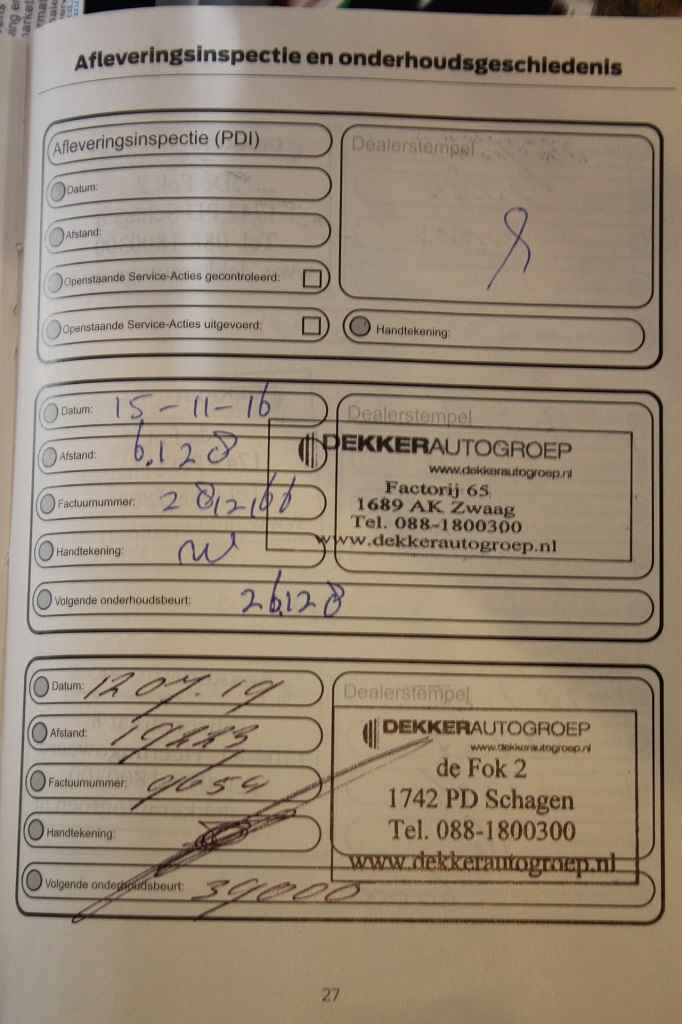 Afleveringsinspectie en onderhoudsgeschiedenis
Afleveringsinspectie (PDI)
Dealerstempel
Datum:
Afstand:
Openstaande Service-Acties gecontroleerd:
Openstaande Service-Acties uitgevoerd:
Handtekening:
Datum: 15-11-16
Dealerstempel
Afstand: 6.128
DEKKERAUTOGROEP
www.dekkerautogroep.nl
Factuurnummer: 2812166
Factorij 65
1689 AK Zwaag
Tel. 088-1800300
Handtekening:
www.dekkerautogroep.nl
Volgende onderhoudsbeurt: 26.128
Datum: 12 07. 19
Dealerstempel
Afstand:
DEKKERAUTOGROEP
www.dekkerautogroep.nl
de Fok 2
Factuurnummer: 9654
1742 PD Schagen
Handtekening:
Tel. 088-1800300
www.dekkerautogroep.nl
Volgende onderhoudsbeurt: 39000
27